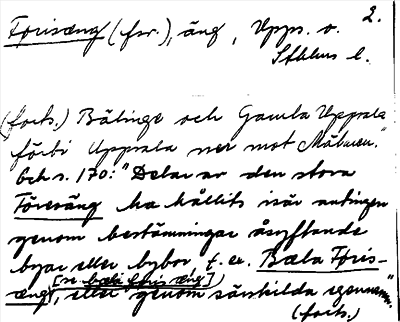 2.
Førisæng (fsv.), äng, Upps. o.
Sthlms l.
(forts.) Bälinge och Gamla Uppsala
förbi Uppsala ner mot Mälaren."
Och s. 170: "Delar av den stora
Föresäng ha hållits isär antingen
genom bestämningar åsyftande
byar eller bybor t. ex. Bæla Føris-
[sic bæla føris æng]
æng, eller genom särskilda egennamn."
(forts.)